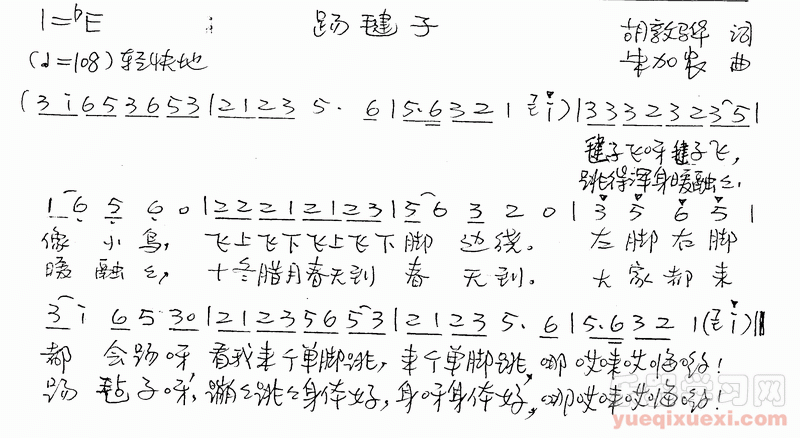 1=ᵇE 踢毽子 胡敦骅 词
(♩=108) 轻快地 朱加农 曲
(3 i 6 5 3 6 5 3 | 2 1 2 3 5. 6 | 5. 6 3 2 1 i) | 3 3 3 2 3 2 3 5 |
毽子飞呀毽子飞,
跳得浑身暖融々.
1 6 5 6 0 | 2 2 2 1 2 1 2 3 | 5 6 3 2 0 | 3 5 6 5 |
像 小 鸟, 飞上飞下飞上飞下 脚 边绕。 左脚右脚
暖 融々, 十冬腊月春天到 春 天到. 大家都来
3 i 6 5 3 0 | 2 1 2 3 5 6 5 3 | 2 1 2 3 5. 6 | 5. 6 3 2 1 (i) ‖
都 会踢呀, 看我来个单脚跳, 来个单脚跳, 哪哎来哎嗨哟!
踢 毽子呀, 蹦々跳々身体好, 身呀身体好, 哪哎来哎嗨哟!
学习网
yueqixuexi.com